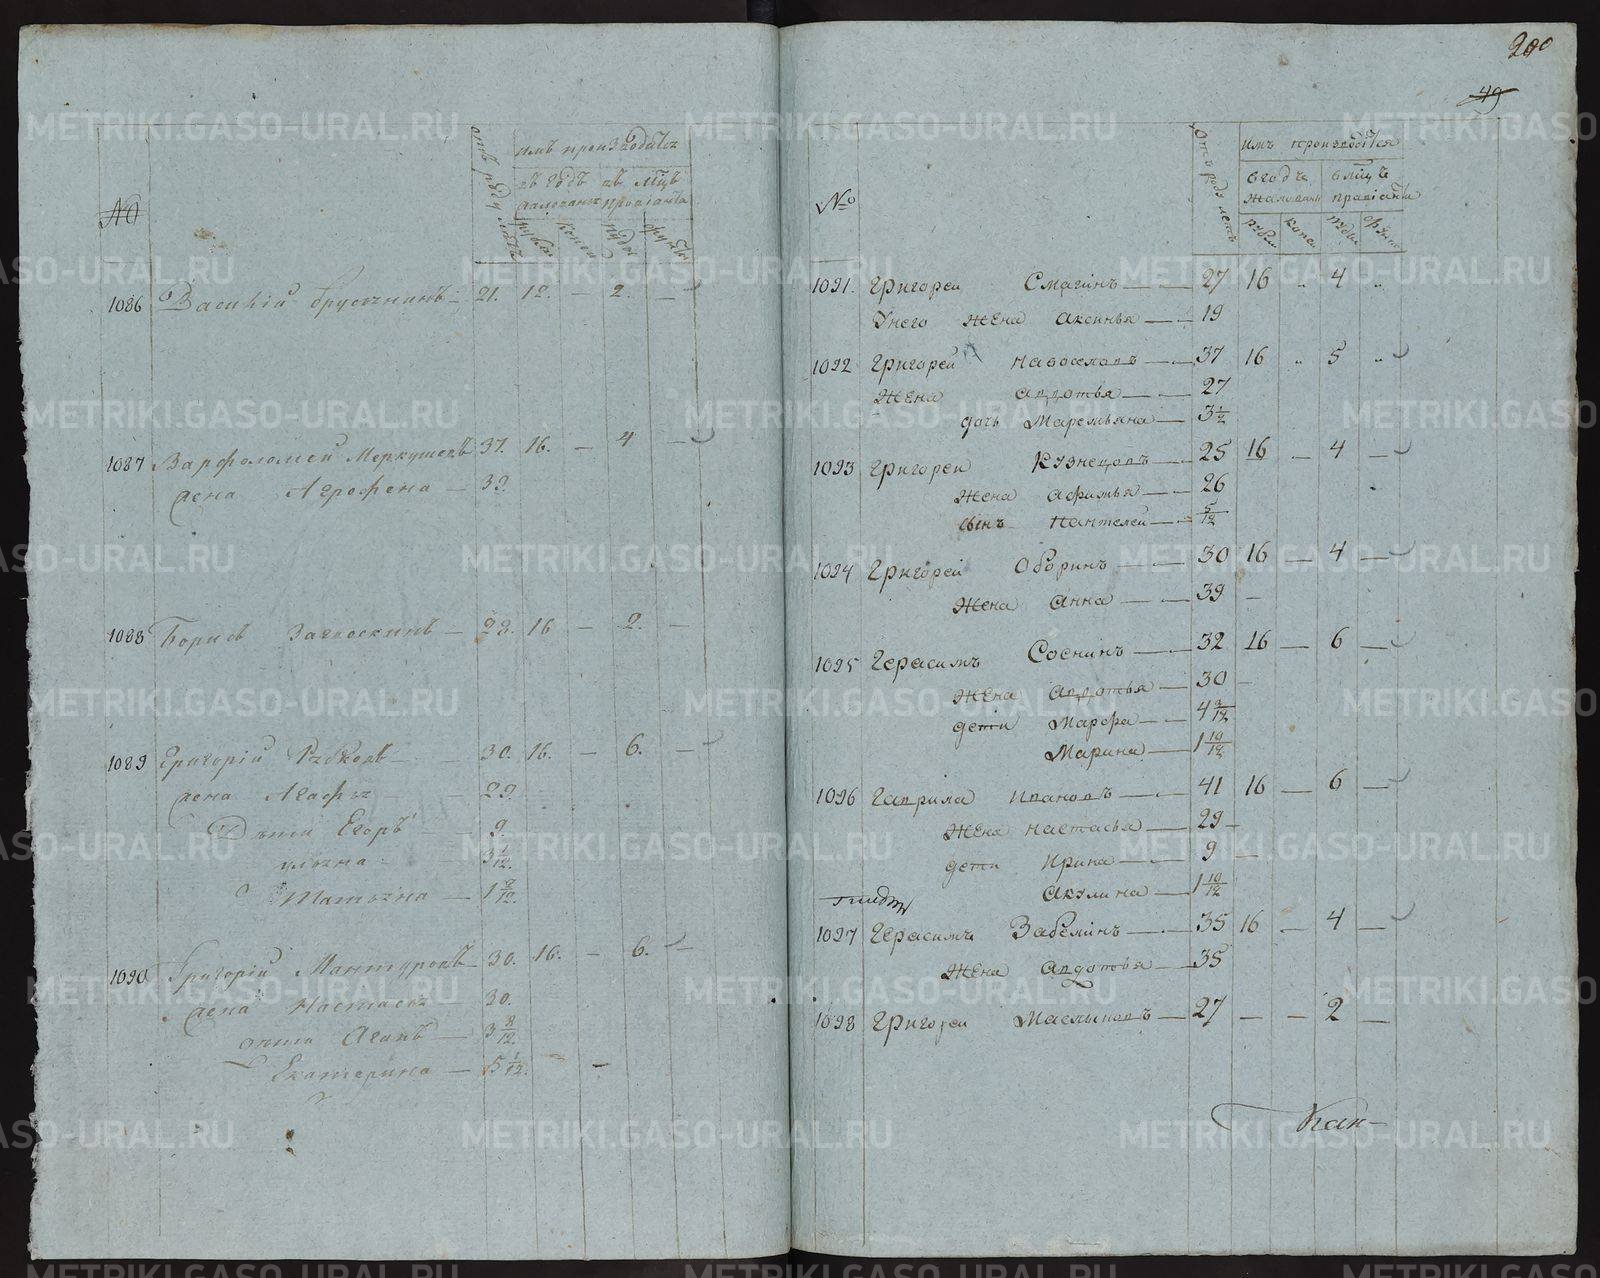 №
отъ роду летъ
имъ производится
въ годъ въ мцъ
жалованья провіанта
рубли копей пуды фунты
1086 Василій Брусочнинъ — 21. 12. — 2. —
1087 Варфоломей Меркушевъ 37. 16. — 4 —
жена Агрофена — 39.
1088 Борисъ — 28. 16 — 2. —
1089 Григорій — 30. 16. — 6. —
жена Агафья — 29
Дѣти Егоръ — 9.
3 1/12.
Татьяна — 1 8/12.
1090 Григорій Мантуровъ — 30. 16. — 6. —
жена Настасья — 30.
дѣти Агапъ — 3 8/12.
Екатерина — 5 1/12.
200
49
№
Отъ роду летъ
имъ производится
в годъ в мцъ
жалованья правіанта
рубли копеи пуды фунты
1091. Григореи Смагинъ — 27 16 „ 4 „
У него жена Аксинья — 19
1092 Григорей Навоселовъ — 37 16 „ 5 „
Жена авдотья — 27
дочь Маремьяна — 3 1/2
1093 Григореи Кузнецовъ — 25 16 — 4 —
Жена афимья — 26
сынъ Пантелей — 5/12
1094 Григорей Оборинъ — 30 16 — 4 —
Жена анна — 39 —
1095 Герасимъ Соснинъ — 32 16 — 6 —
Жена авдотья — 30 —
дети Марфа — 4 9/12
Марина — 1 10/12
1096 Гаврила Ивановъ — 41 16 — 6 —
Жена настасья — 29 —
дети Ирина — 9 —
Акулина — 1 10/12
1097 Герасимъ Забелинъ — 35 16 — 4 —
Жена авдотья — 35
1098 Григореи Маслыковъ — 27 — — 2 —